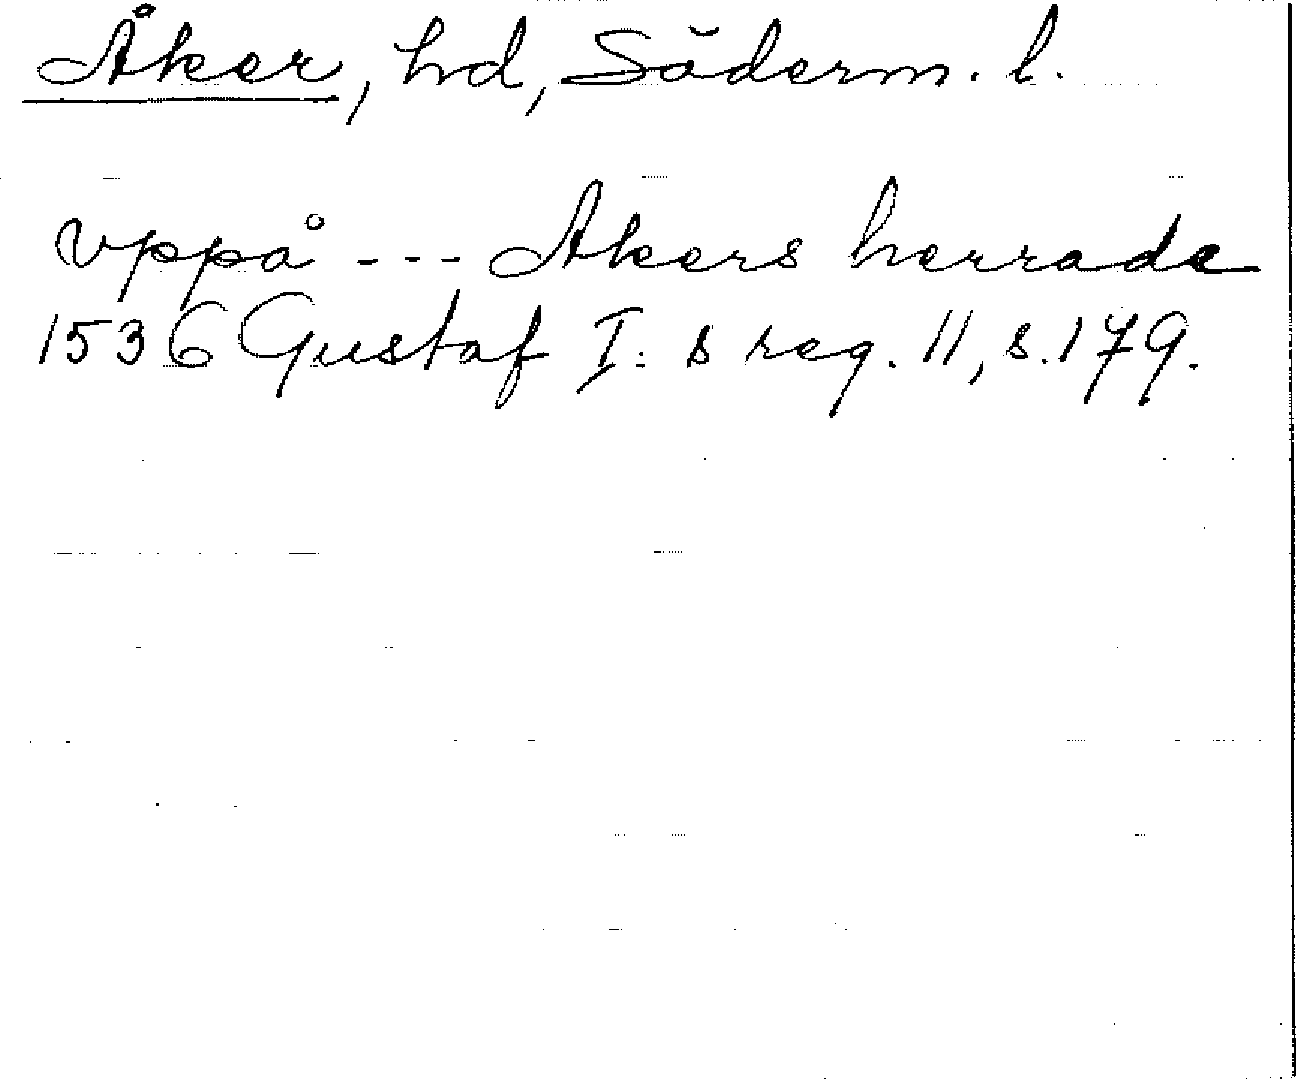 Åker, hd, Söderm. l.
vppå --- Akers herrade
1536 Gustaf I: s reg. 11, s. 179.